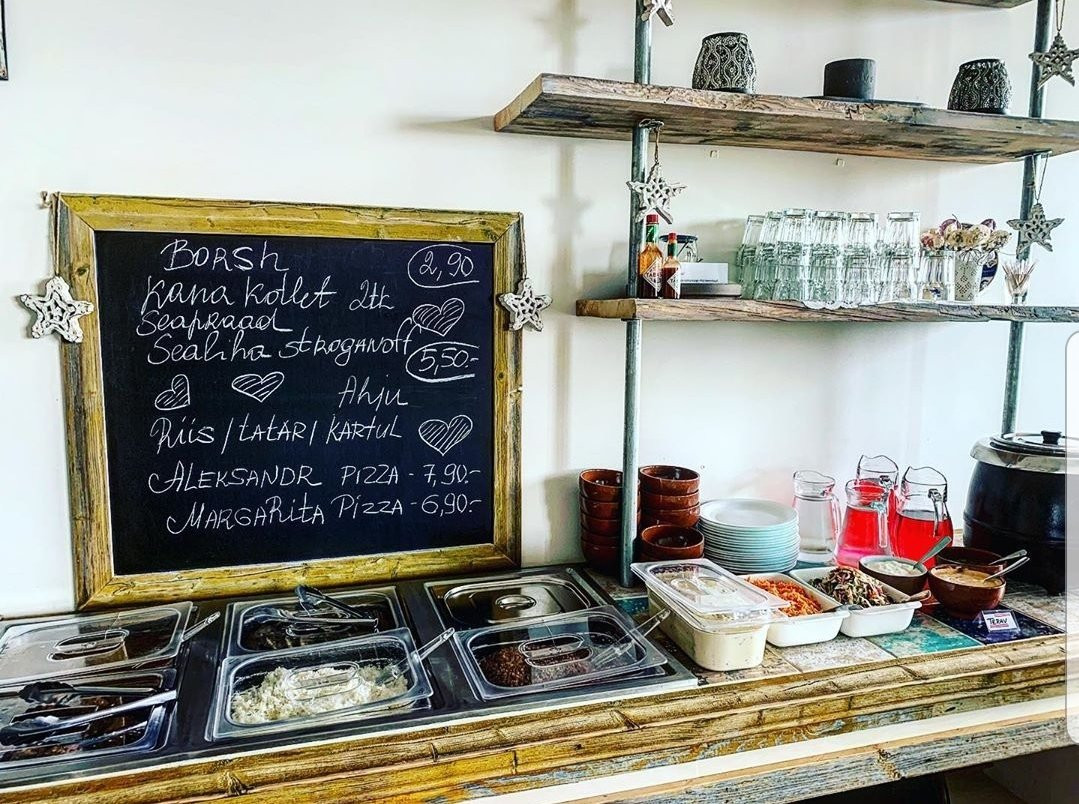 Borsh 2,90
Kana Kotlet 2tk
Seapraad
Sealiha stroganoff 5,50.-
Ahju
Riis / tatar / kartul
Aleksandr pizza - 7,90.-
Margarita Pizza - 6,90.-
TERAV